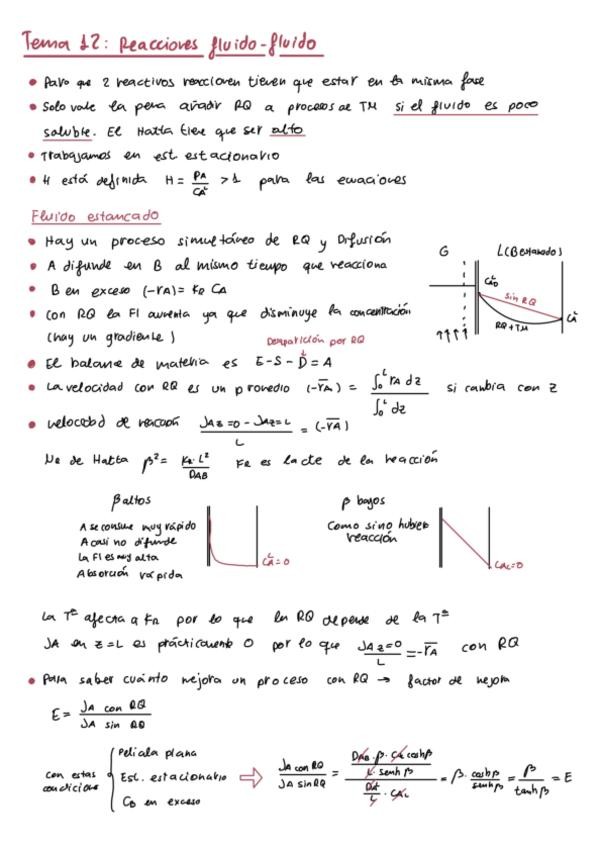 Tema 12: Reacciones fluido-fluido
• Para que 2 reactivos reaccionen tienen que estar en la misma fase
• Solo vale la pena añadir RQ a procesos de TM si el fluido es poco
soluble. El Hatta tiene que ser alto
• Trabajamos en est. estacionario
• H está definida H = PA / CA^L > 1 para las ecuaciones
Fluido estancado
• Hay un proceso simultáneo de RQ y Difusión
• A difunde en B al mismo tiempo que reacciona
• B en exceso (-rA) = kR CA
• Con RQ la FI aumenta ya que disminuye la concentración
(hay un gradiente)
G L(B estancado)
sin RQ
RQ+TM
Desaparición por RQ
• El balance de materia es E - S - D = A
• La velocidad con RQ es un promedio (-rA) = ∫0^L rA dz / ∫0^L dz si cambia con z
• velocidad de reacción JA z=0 - JA z=L / L = (-rA)
Nº de Hatta β² = kR·L² / DAB kR es la cte de la reacción
β altos
A se consume muy rápido
A casi no difunde
La FI es muy alta
Absorción rápida
CA^L=0
β bajos
Como si no hubiera
reacción
CAL=0
La Tª afecta a kR por lo que la RQ depende de la Tª
JA en z=L es prácticamente 0 por lo que JA z=0 / L = -rA con RQ
• Para saber cuánto mejora un proceso con RQ → factor de mejora
E = JA con RQ / JA sin RQ
con estas
condiciones
Película plana
Est. estacionario
CB en exceso
JA con RQ / JA sin RQ = (DAB·β·CAL coshβ / L·senhβ) / (DA / L · CAL) = β · coshβ / senhβ = β / tanhβ = E